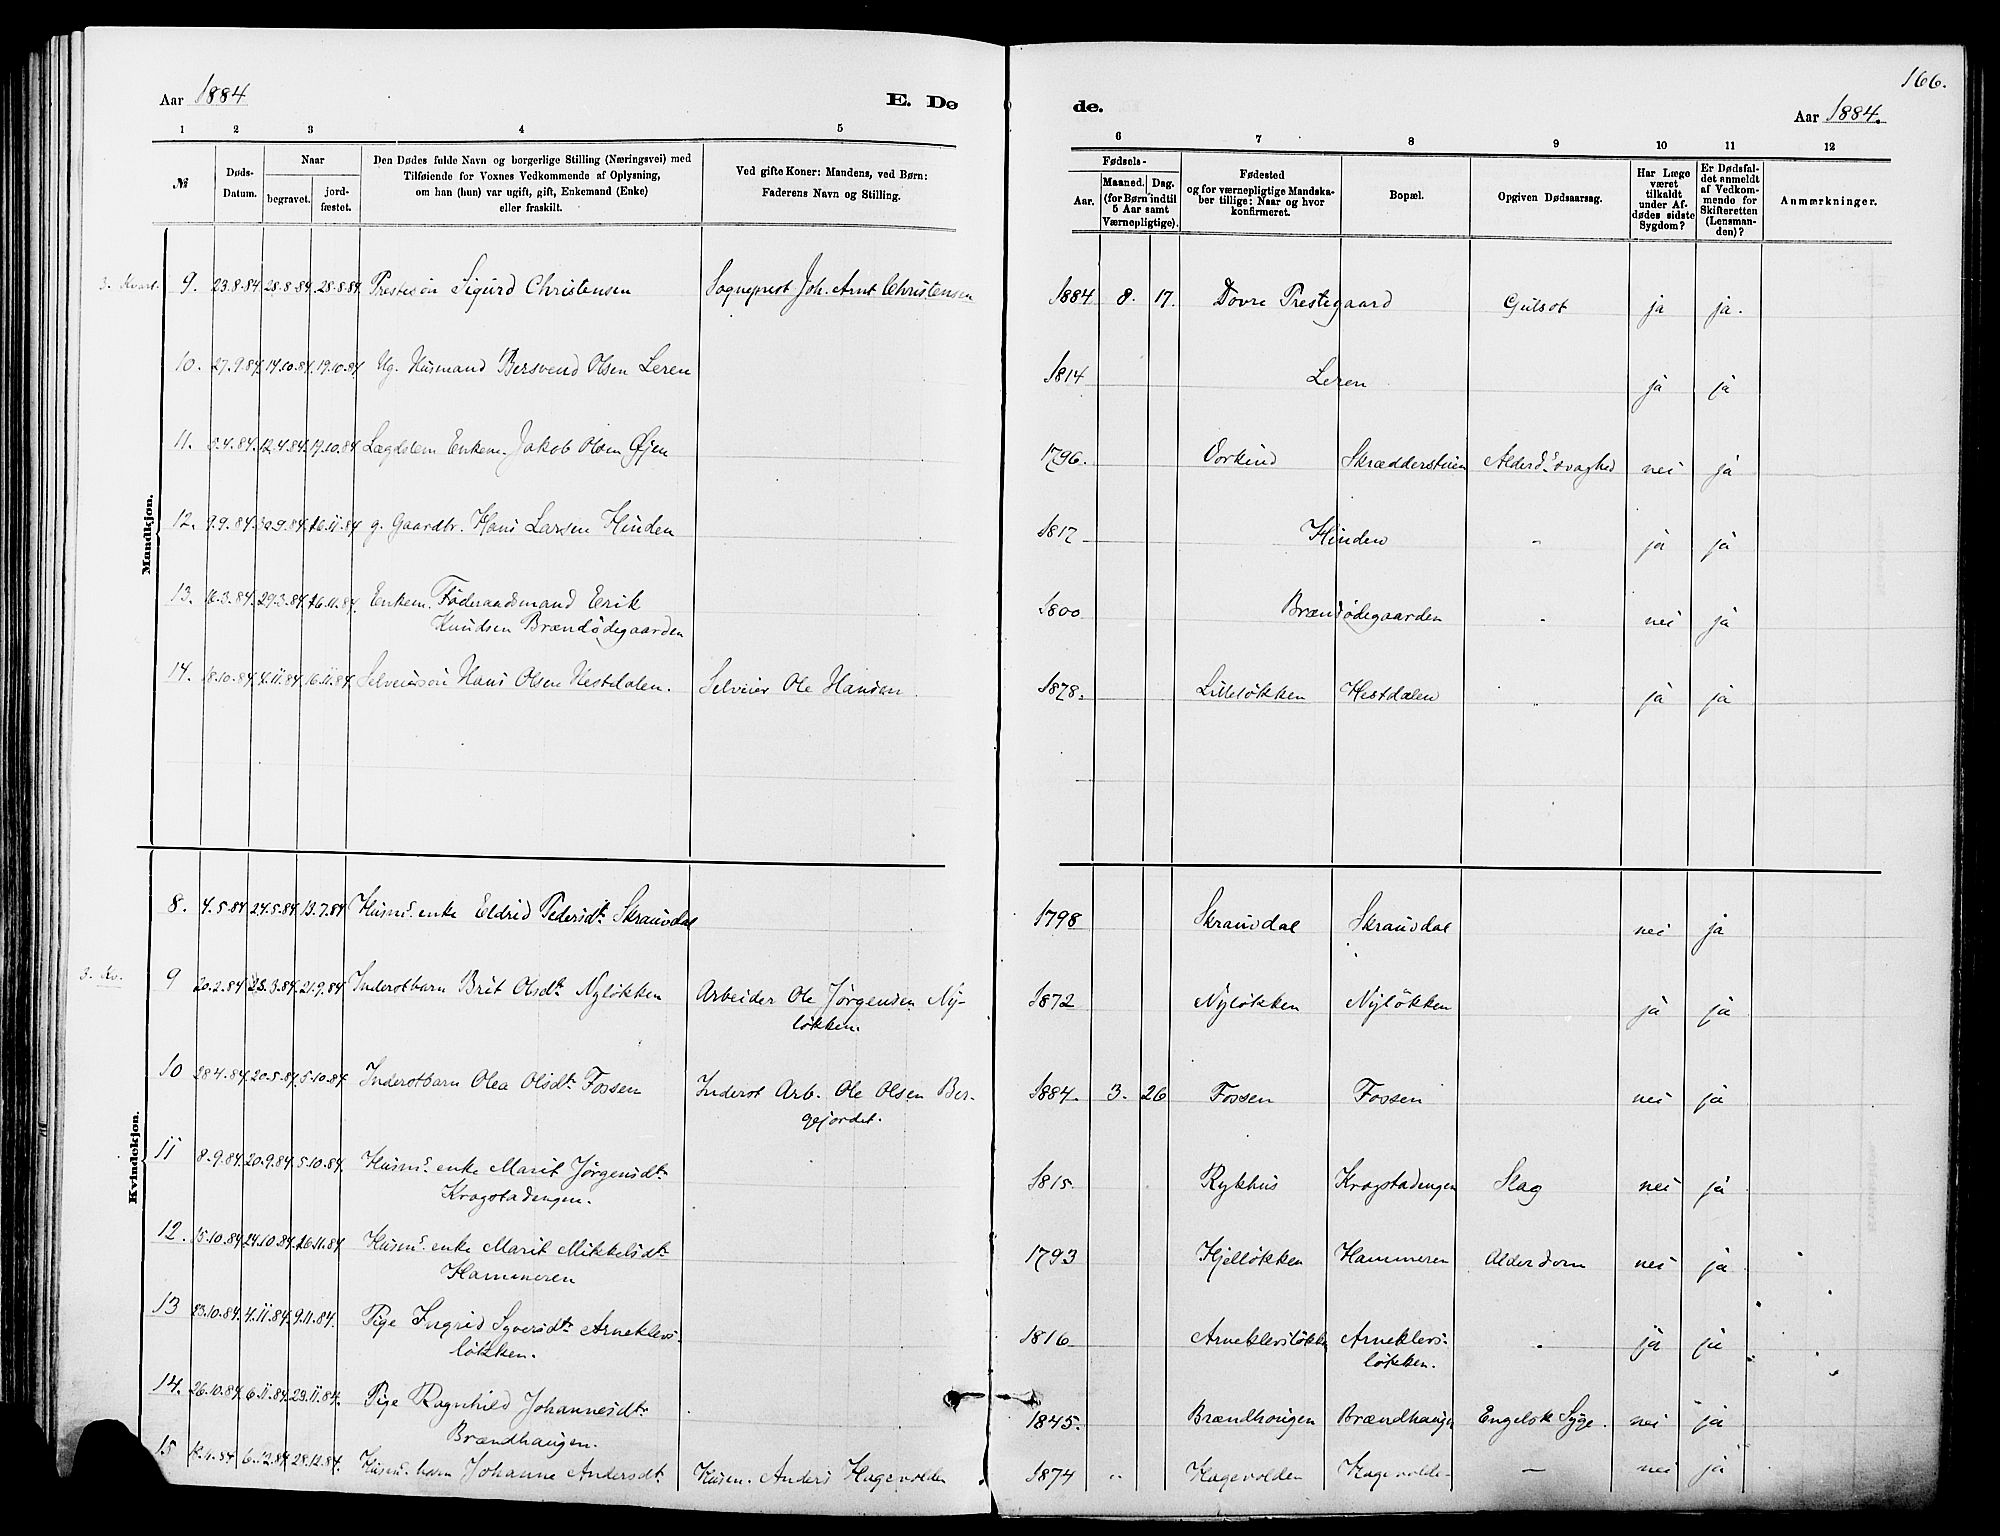 Aar 1884
E. Dø
de.
166.
Aar 1884.
1 2 3 4 5 6 7 8 9 10 11 12
№
Døds-
Datum.
Naar
begravet.
jord-
fæstet.
Den Dødes fulde Navn og borgerlige Stilling (Næringsvei) med
Tilføiende for Voxnes Vedkommende af Oplysning,
om han (hun) var ugift, gift, Enkemand (Enke)
eller fraskilt.
Ved gifte Koner: Mandens, ved Børn:
Faderens Navn og Stilling.
Fødsels-
Aar.
Maaned. Dag.
(for Børn indtil
5 Aar samt
Værnepligtige).
Fødested
og for værnepligtige Mandska-
ber tillige: Naar og hvor
konfirmeret.
Bopæl.
Opgiven Dødsaarsag.
Har Læge
været
tilkaldt
under Af-
dødes sidste
Sygdom?
Er Dødsfal-
det anmeldt
af Vedkom-
mende for
Skifteretten
(Lensman-
den)?
Anmærkninger.
Mandkjøn.
3. Kvart. 9. 23.8.84 28.8.84 28.8.84 Prestesøn Sigurd Christensen Sogneprest Joh. Arnt Christensen 1884 8. 17. Dovre Prestegaard Gulsot ja ja.
10. 27.9.84 14.10.84 19.10.84 Ug. Husmand Bersvend Olsen Leren 1814 Leren ja ja
11. 12.4.84 17.10.84 Lægdslem Enkem. Jakob Olsen Øjen 1796. Vorkind Skrædderstuen Alderd.s svaghed nei ja
12. 9.9.84 16.11.84 g. Gaardbr. Hans Larsen Hinden 1817 Hinden " ja ja
13. 16.3.84 29.3.84 16.11.84 Enkem. Føderaadsmand Erik
Knudsen Brændødegaarden 1800 Brændødegaarden " nei ja
14. 18.10.84 4.11.84 16.11.84 Selveiersøn Hans Olsen Hestdalen. Selveier Ole Hansen 1878. Lilleløkken Hestdalen " ja ja
Kvindekjøn.
8. 4.5.84 24.5.84 13.7.84 Husms. enke Eldrid Pedersdt. Skrauvdal 1798 Skrauvdal Skrauvdal nei ja
3. Kv. 9 20.2.84 23.3.84 21.9.84 Inderstbarn Brit Olsdt. Nyløkken Arbeider Ole Jørgensen Ny-
løkken. 1872 Nyløkken Nyløkken ja ja
10 28.4.84 20.5.84 5.10.84 Inderstbarn Olea Olsdt. Fossen Inderst Arb. Ole Olsen Ber-
gejordet. 1884. 3. 26 Fossen Fossen nei ja
11 8.9.84 20.9.84 5.10.84 Husms. enke Marit Jørgensdt.
Kragstadengen. 1815. Rykhus Kragstadengen Slag nei ja
12. 15.10.84 24.10.84 26.11.84 Husms. enke Marit Mikkelsdt.
Hammeren 1793 Kjelløkken Hammeren Alderdom nei ja
13 23.10.84 4.11.84 9.11.84. Pige Ingrid Syversdt. Arneklevs-
løkken. 1816 Arneklevsløkken Arneklevs-
løkken. " ja ja
14. 26.10.84 6.11.84 23.11.84. Pige Ragnhild Johannesdt.
Brændhaugen. 1845. Brændhaugen Brændhaugen Engelsk Syge. nei ja
15 6.12.84 28.12.84. Husms. barn Johanne Andersdt. Husm. Anders Hagevolden 1874 " Hagevolden Hagevolde- — nei ja